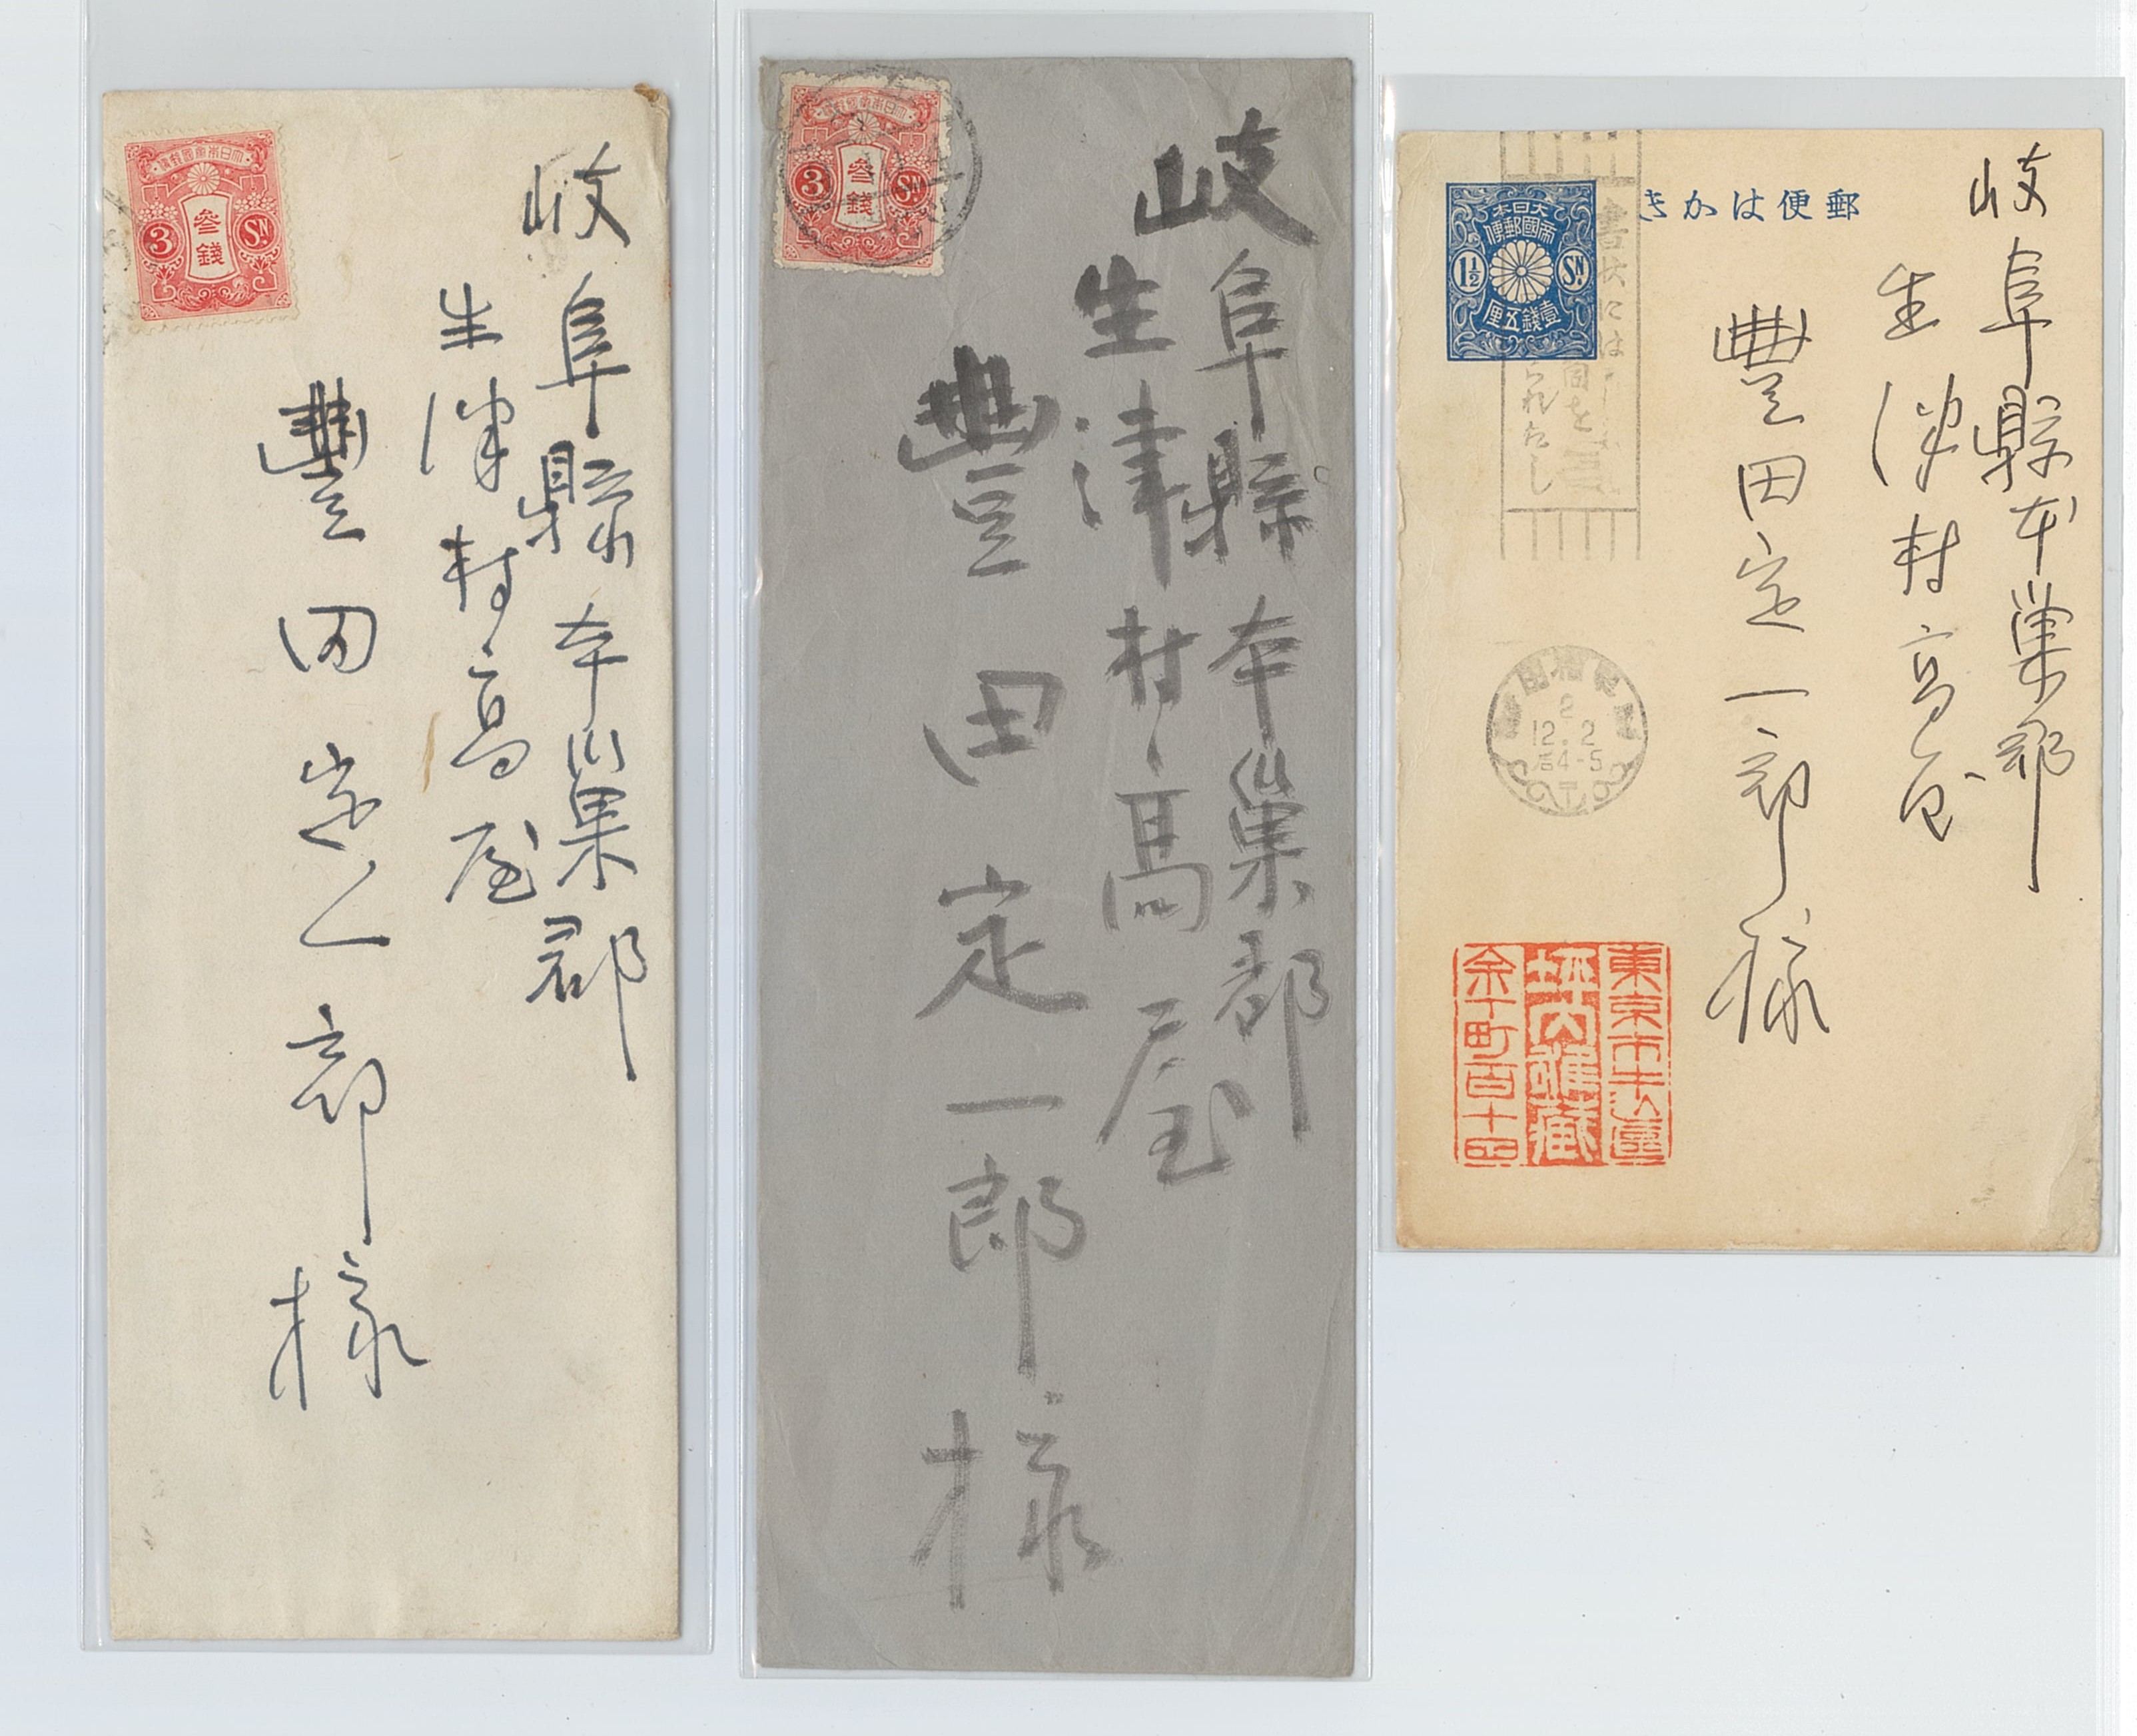 大日本帝國郵便
參錢
3 SN
岐阜縣本巣郡
生津村高屋
豐田定一郎様
大日本帝國郵便
參錢
3 SN
岐阜縣本巣郡
生津村高屋
豐田定一郎様
郵便はかき
大日本
帝國郵便
1½ SN
壹錢五厘
岐阜縣本巣郡
生津村高屋
豐田定一郎様
2
12.2
后4-5
東京市牛込區
坪內雄藏
余丁町百十四